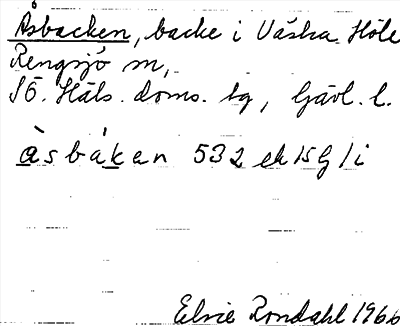 Åsbacken, backe i Västra Höle
Rengsjö sn,
Sö. Häls. doms. tg, Gävl. l.
àsbáken 532 ek 15 G 1 i
Elsie Rondahl 1966